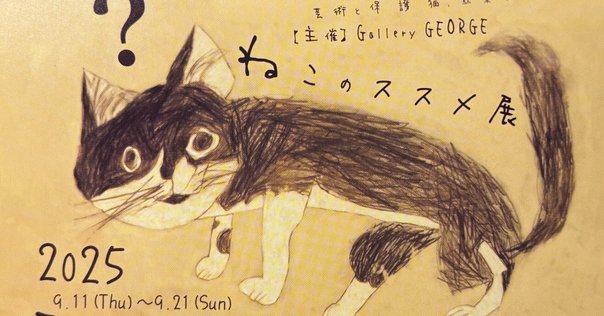 芸術と保護猫、
[主催] Gallery GEORGE
?
ねこのススメ展
2025
9.11(Thu)～9.21(Sun)